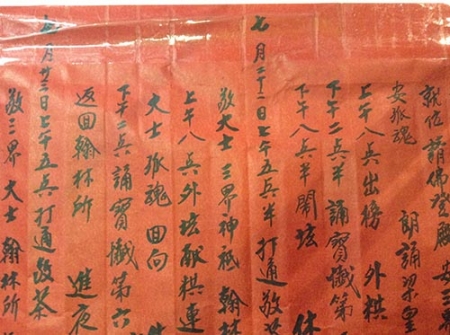 就位請佛登殿 安三界
安孤魂 朗誦梁皇
上午八奌出榜 外棋
下午二奌半誦寶懺第
下午八奌半閙坛 休
七月二十二日上午五奌半打通敬茶
敬大士三界神祇翰林
上午八奌外坛献棋連
大士孤魂回向
下午二奌誦寶懺第六
返回翰林所 進夜
七月廿三日上午五奌打通敬茶
敬三界大士翰林所